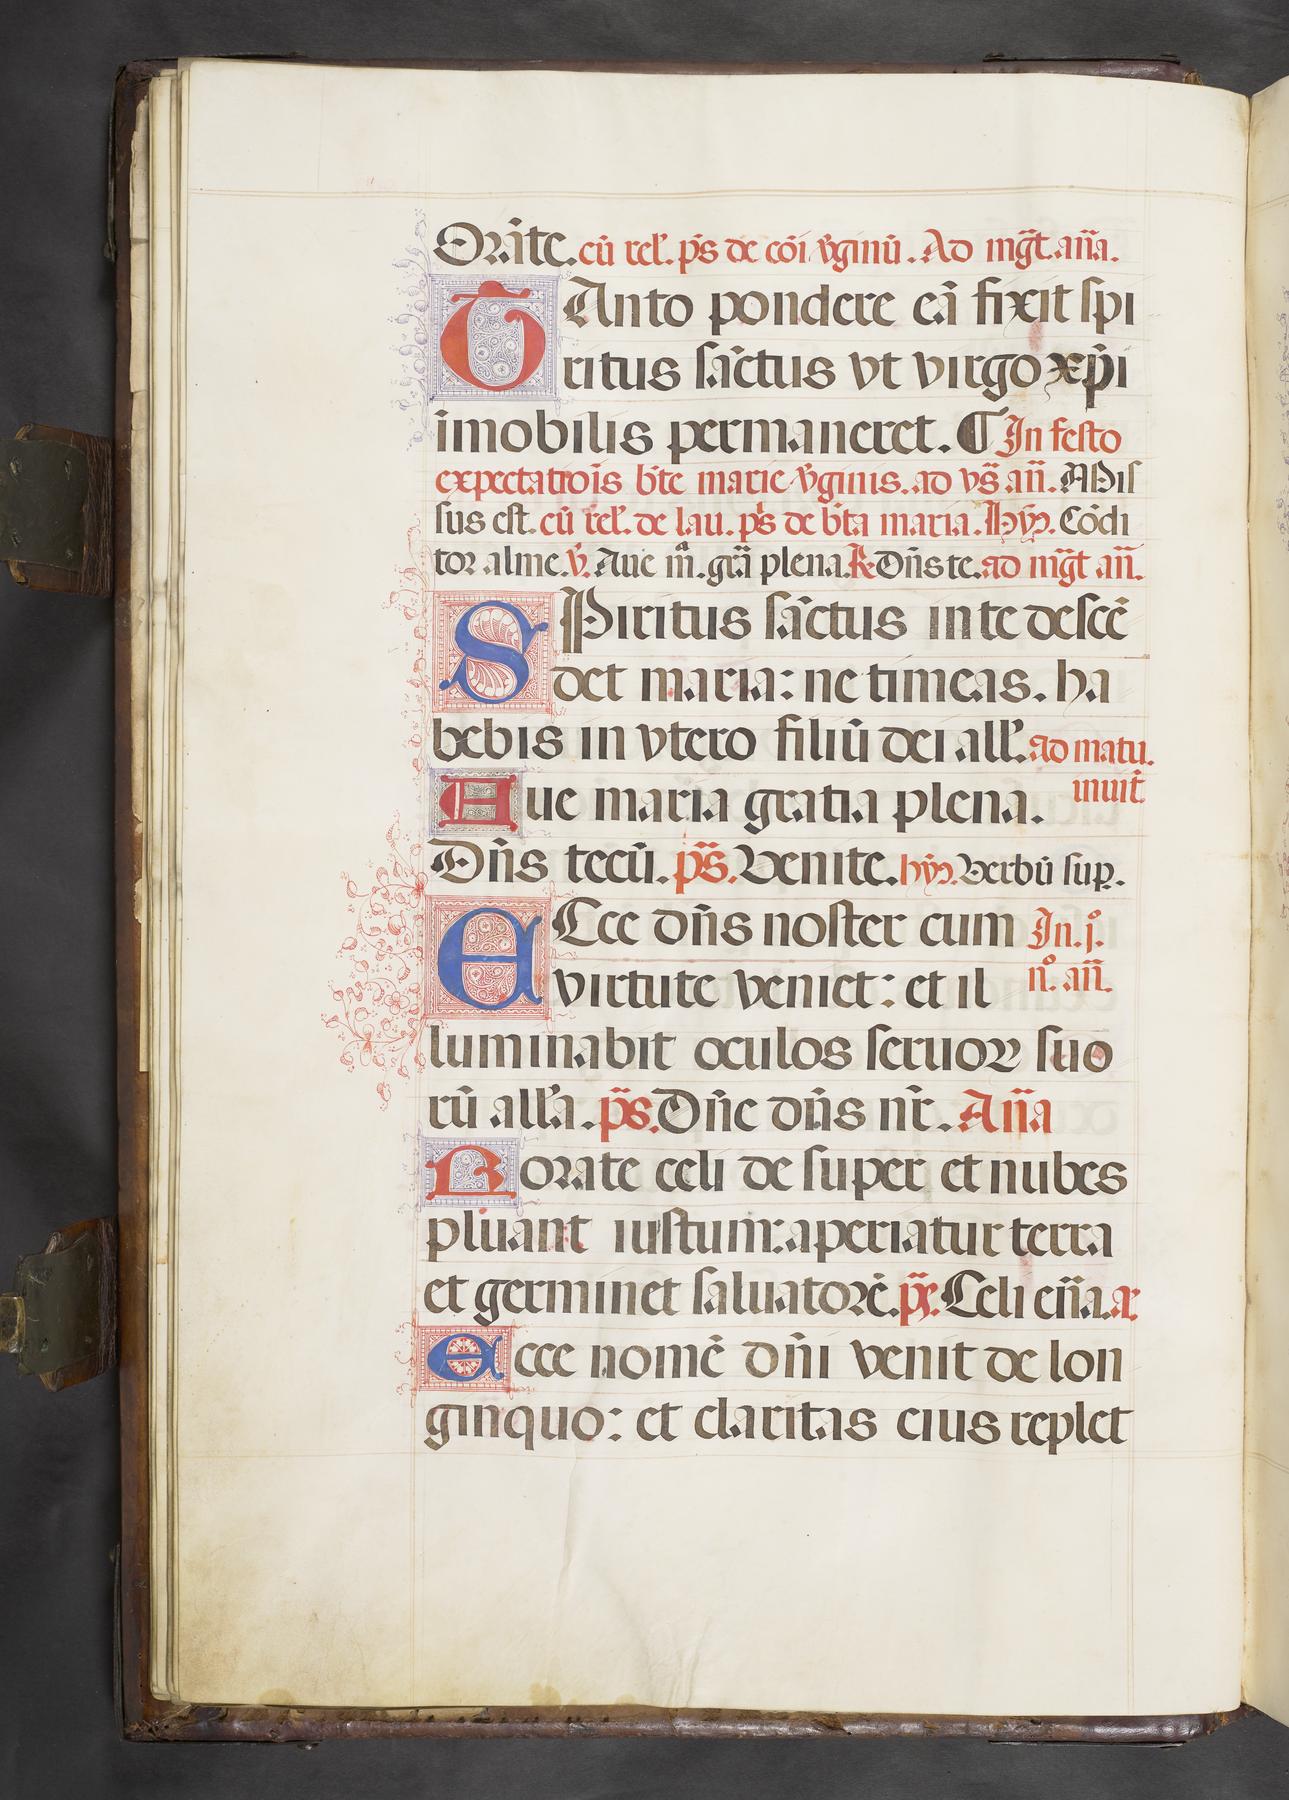 Orãte. cũ rel̃. p̃s de cõi ṽginũ. Ad mg̃t. aña.
TAnto pondere eã fixit spi
ritus sãctus vt virgo xp̃i
imobilis permaneret. ¶ In festo
expectatiõis bt̃e marie ṽginis. ad vs̃ añ. Mis
sus est. cũ rel̃. de lau. p̃s de bt̃a maria. Hỹ. Cõdi
tor alme. ṽ. Aue m̃. grã plena. R̃ Dñs te. ad mg̃t añ.
SPiritus sãctus in te descẽ
det maria: ne timeas. ha
bebis in vtero filiũ dei all̃. ad matu.
Aue maria gratia plena. inuit̃.
Dñs tecũ. p̃s. Venite. hỹ. Verbũ sup̱.
ECce dñs noster cum In. j.º
virtute veniet: et il n.º añ.
luminabit oculos seruoꝝ suo
rũ all̃a. p̃s. Dñe dñs nr̃. Aña
Rorate celi de super et nubes
pluant iustum: aperiatur terra
et germinet saluatorẽ. p̃s. Celi eña. a.
Ecce nomẽ dñi venit de lon
ginquo: et claritas eius replet